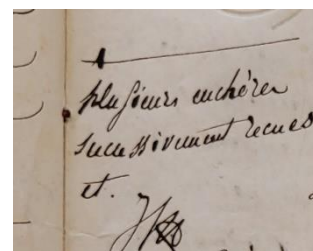 plusieurs enchères
successivement recues
et.